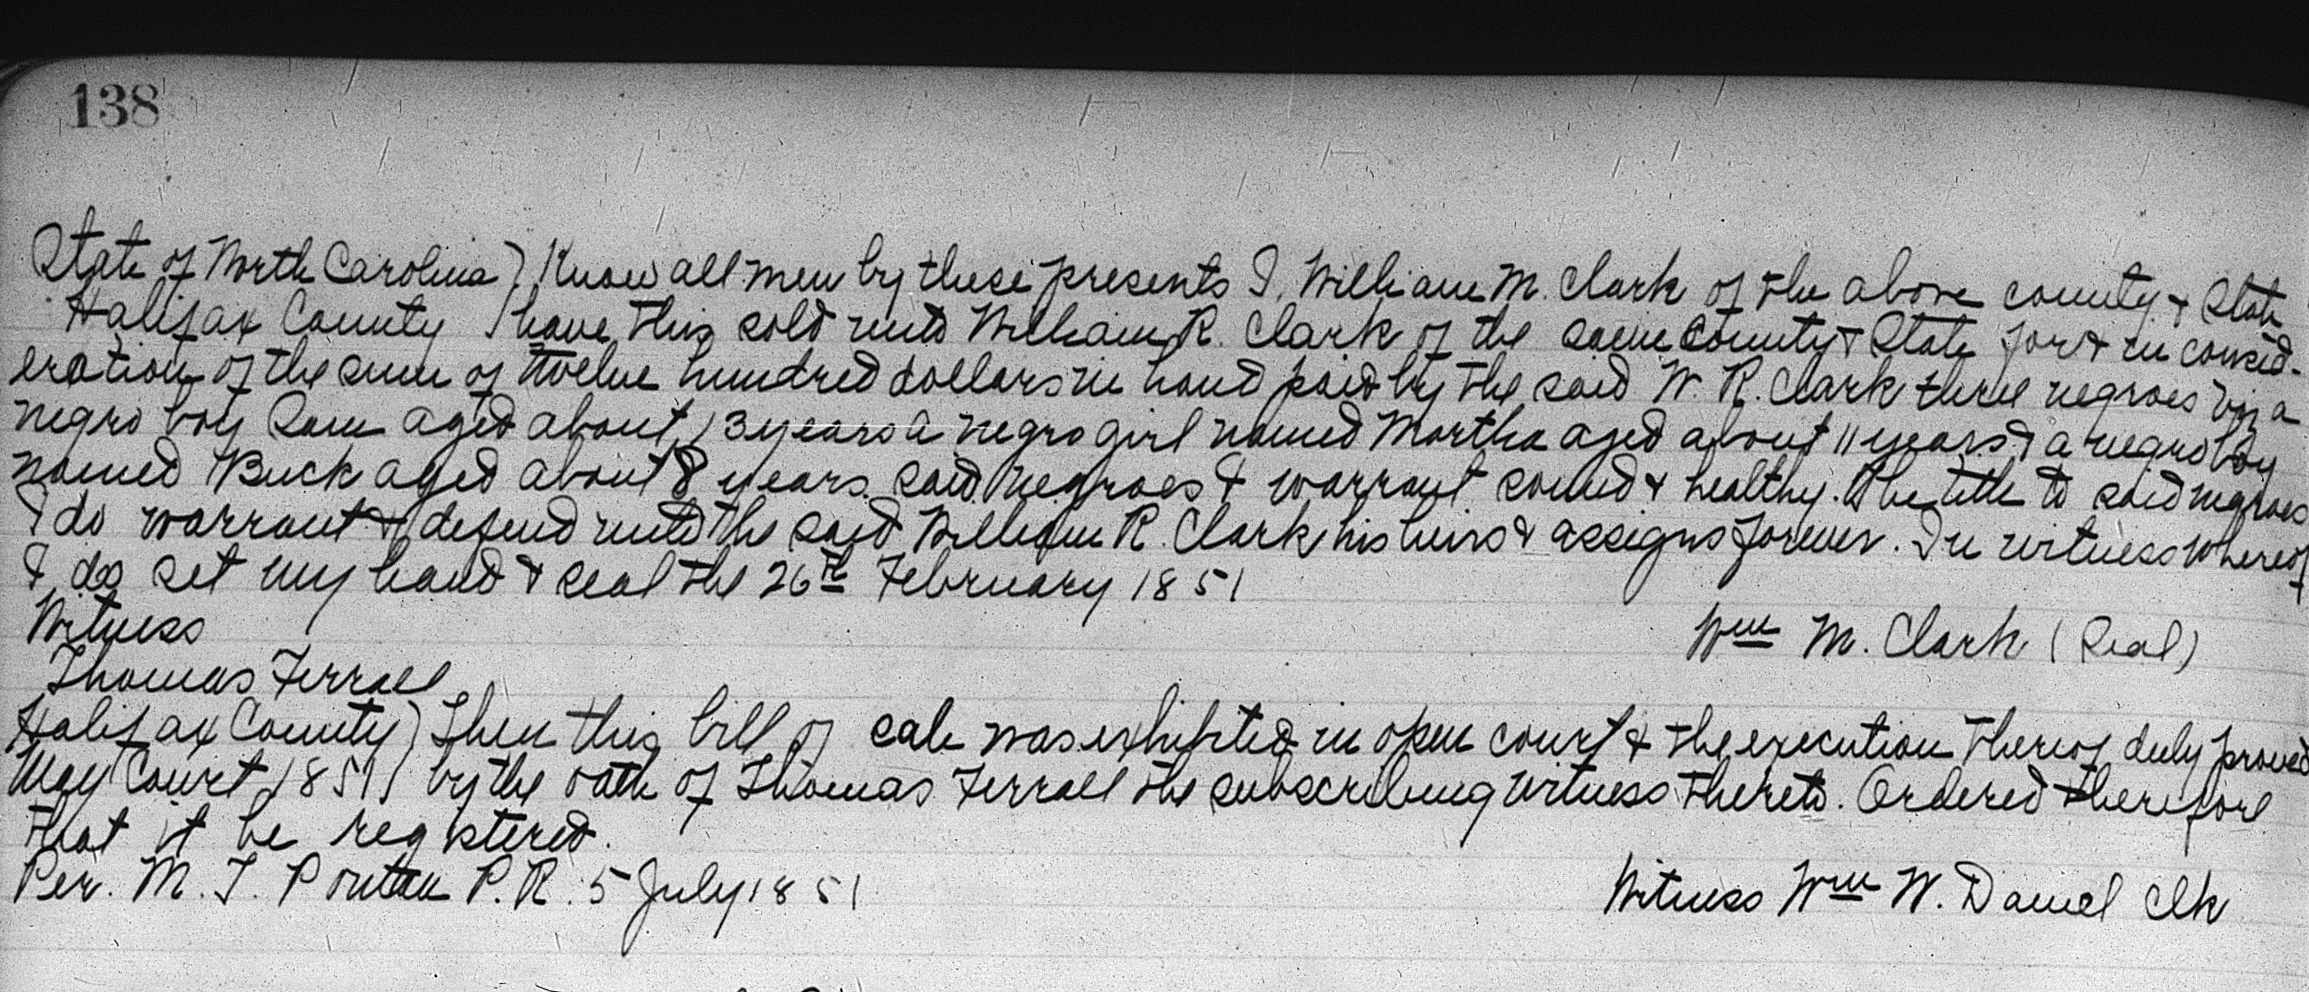 138
State of North Carolina } Know all men by these presents I, William M. Clark of the above county & State
Halifax County } have this sold unto William R. Clark of the same County & State for & in consid-
eration of the sum of twelve hundred dollars in hand paid by the said W. R. Clark three negroes viz a
negro boy Sam aged about 13 years a negro girl named Martha aged about 11 years & a negro boy
named Buck aged about 8 years. said negroes I warrant sound & healthy. The title to said negroes
I do warrant & defend unto the said William R. Clark his heirs & assigns forever. In witness whereof
I do set my hand & seal the 26th February 1851
Witness Wm M. Clark (Seal)
Thomas Ferrall
Halifax County } Then this bill of sale was exhibited in open court & the execution thereof duly proved
May Court 1851 } by the oath of Thomas Ferrall the subscribing witness thereto. Ordered therefore
that it be registered.
Per. M. T. Ponton P.R. 5 July 1851 Witness Wm W. Daniel Clk